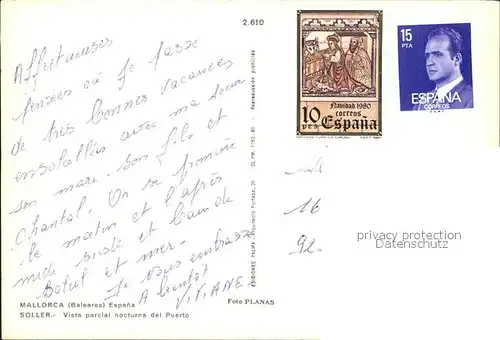 2.610
Affectueuses
pensées où je passe
de très bonnes vacances
ensoleillées avec ma sœur
son mari. son fils et
Chantal. On se promène
le matin et l'après
midi sieste et bain de
soleil et mer.
Je vous embrasse
A bientôt
VIVIANE
MALLORCA (Baleares) España
SOLLER.- Vista parcial nocturna del Puerto
Foto PLANAS
EDICIONES PALMA
Reproducción prohibida
Navidad 1980
correos
10 PTS España
15
PTA
ESPAÑA
CORREOS
16
92.
privacy protection
Datenschutz